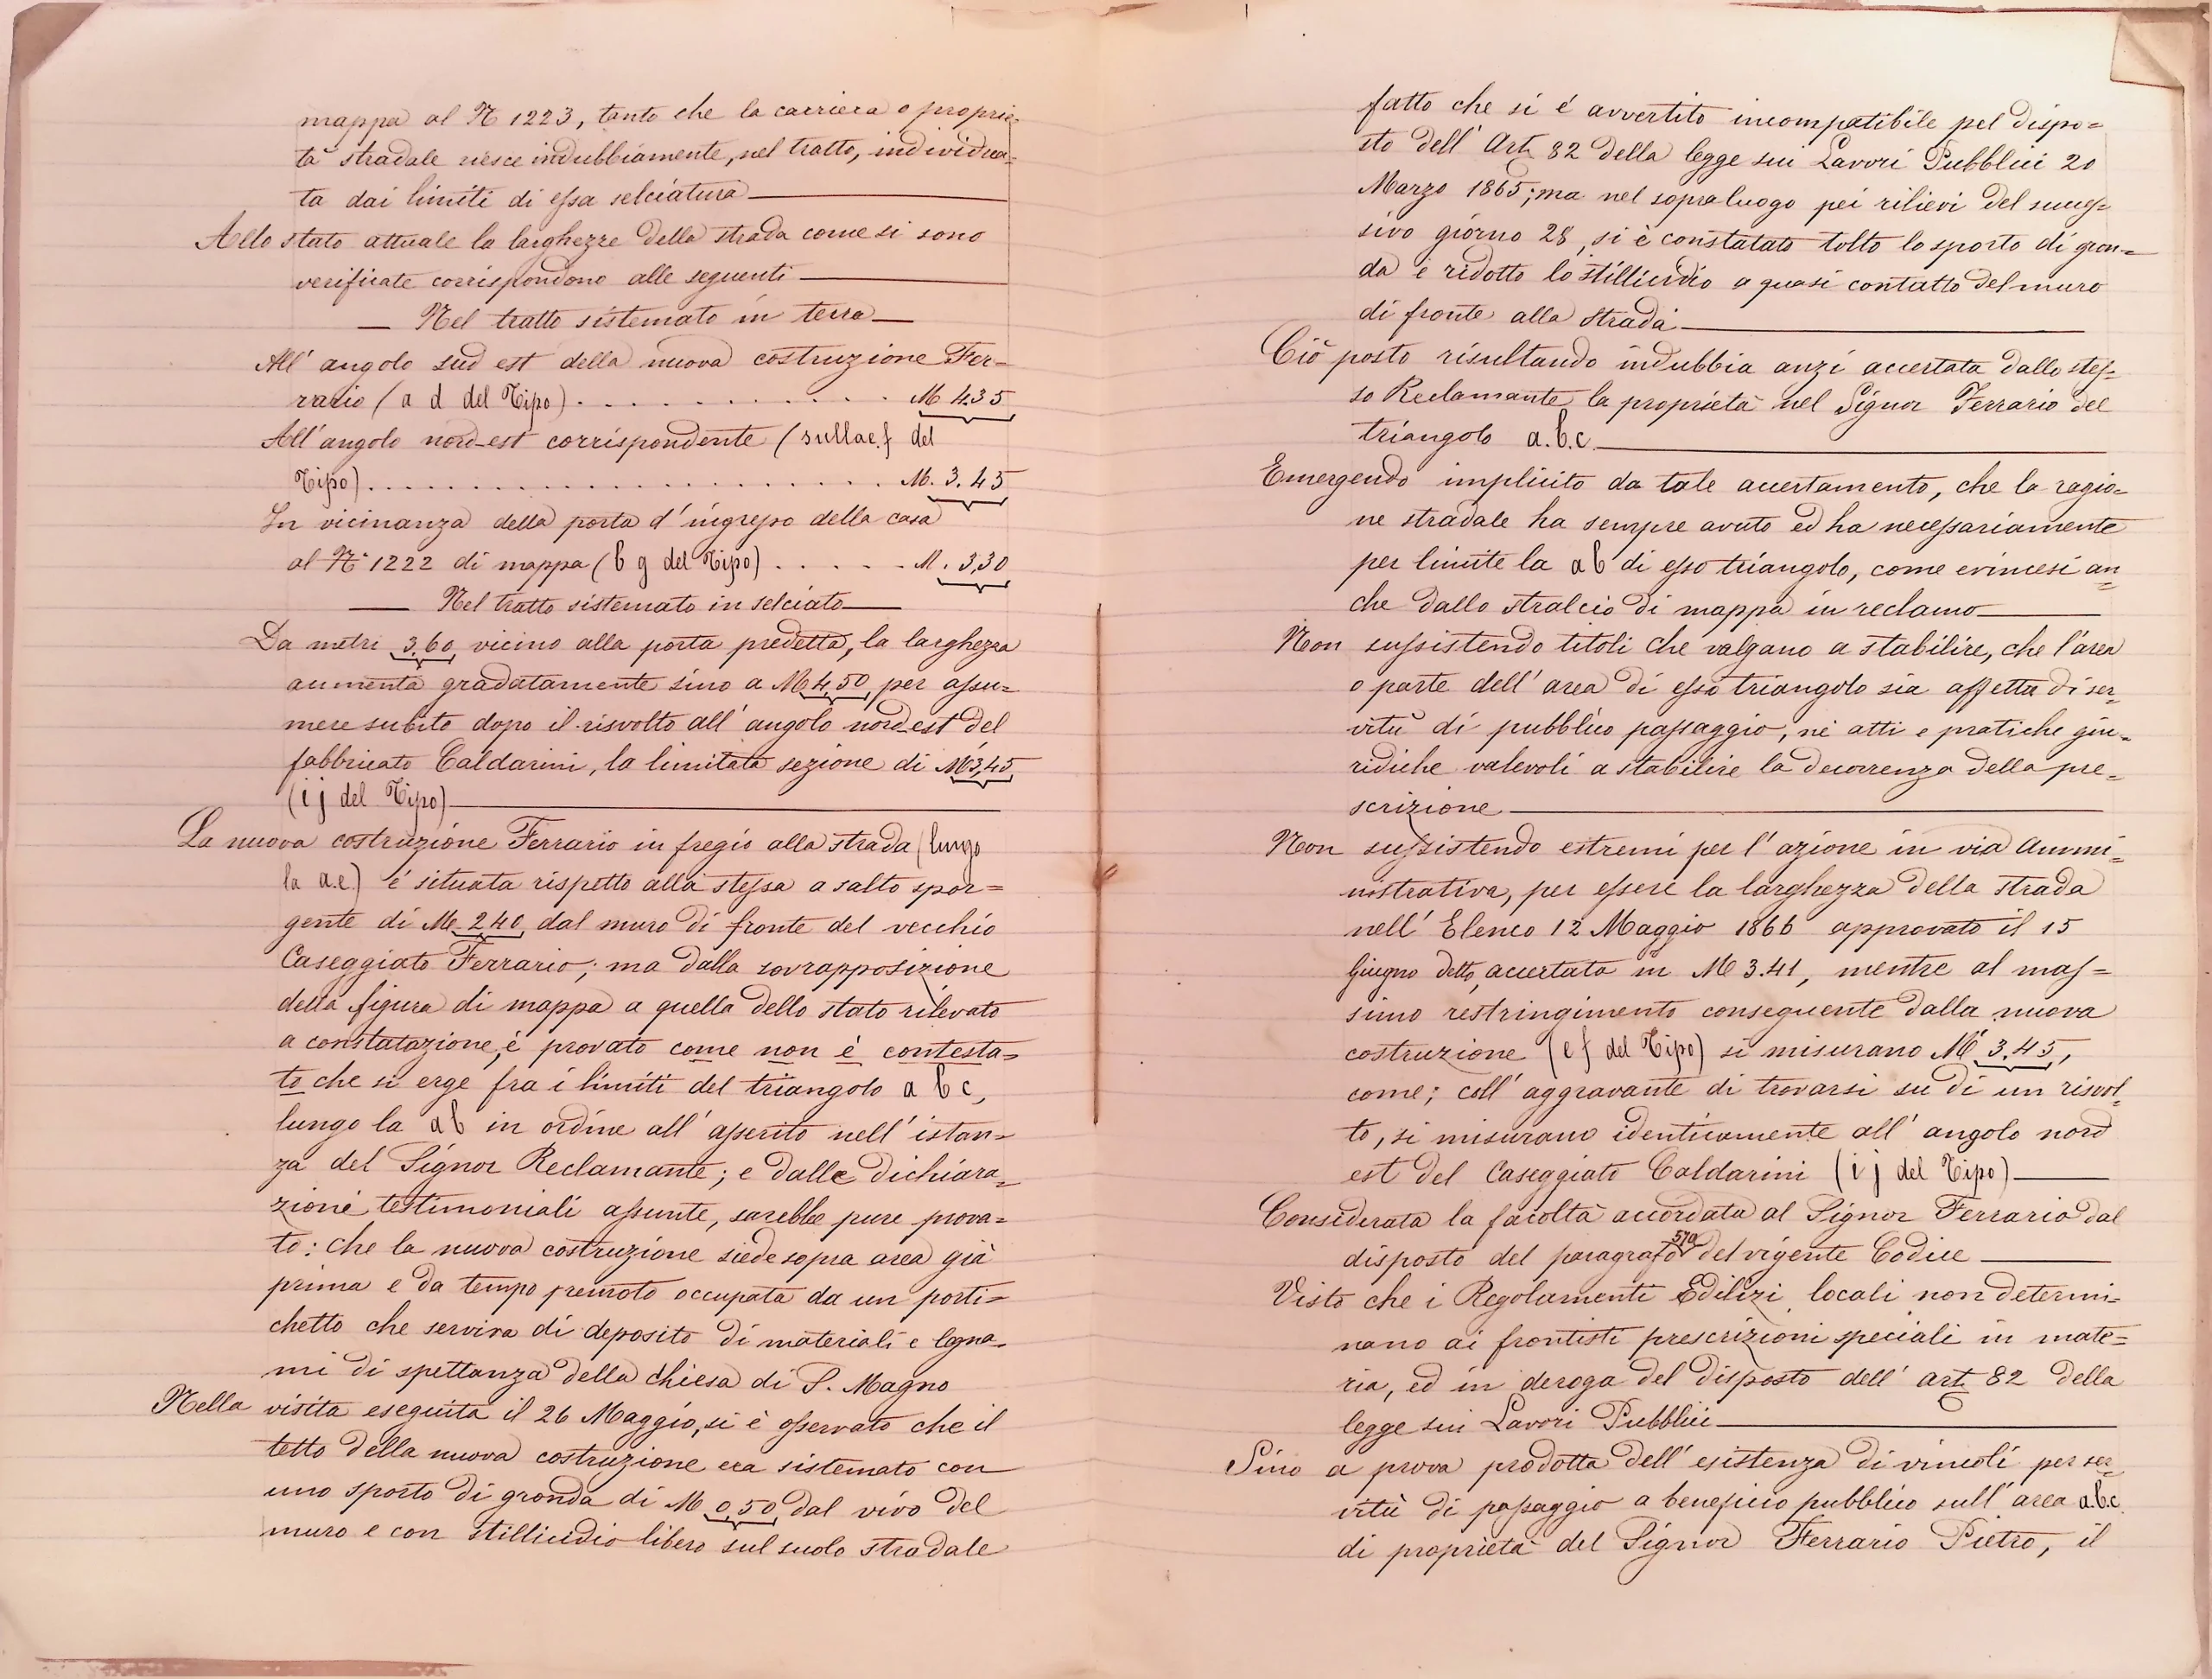 mappa al N 1223, tanto che la carriera o proprie=
tà stradale riesce indubbiamente, nel tratto, individua=
ta dai limiti di essa selciatura
Allo stato attuale le larghezze della strada come si sono
verificate corrispondono alle seguenti
— Nel tratto sistemato in terra —
All' angolo sud est della nuova costruzione Fer=
rario (a d del Tipo) . . . . . . . . . . . . M 4.35
All' angolo nord-est corrispondente (sulla e.f del
Tipo) . . . . . . . . . . . . . . . . . . . . . . M. 3.45
In vicinanza della porta d' ingresso della casa
al N° 1222 di mappa (b g del Tipo) . . . . . M. 3,30
— Nel tratto sistemato in selciato —
Da metri 3.60 vicino alla porta predetta, la larghezza
aumenta gradatamente sino a M 4,50 per assu=
mere subito dopo il risvolto all' angolo nord-est del
fabbricato Caldarini, la limitata sezione di M 3,45
(i j del Tipo)
La nuova costruzione Ferrario in fregio alla strada (lungo
la a.e.) é situata rispetto alla stessa a salto spor=
gente di M 2.40 dal muro di fronte del vecchio
Caseggiato Ferrario; ma dalla sovrapposizione
della figura di mappa a quella dello stato rilevato
a constatazione, é provato come non è contesta=
to che si erge fra i limiti del triangolo a b c,
lungo la ab in ordine all' asserito nell' istan=
za del Signor Reclamante; e dalle dichiara=
zioni testimoniali assunte, sarebbe pure prova=
to: che la nuova costruzione siede sopra area già
prima e da tempo premoto occupata da un porti=
chetto che serviva di deposito di materiali e legna=
mi di spettanza della chiesa di S. Magno
Nella visita eseguita il 26 Maggio, si è osservato che il
tetto della nuova costruzione era sistemato con
uno sporto di gronda di M 0,50 dal vivo del
muro e con stillicidio libero sul suolo stradale
fatto che si é avvertito incompatibile pel dispo=
sto dell' Art. 82 della legge sui Lavori Pubblici 20
Marzo 1865; ma nel sopraluogo pei rilievi del succes=
sivo giorno 28, si è constatato tolto lo sporto di gron=
da e ridotto lo stillicidio a quasi contatto del muro
di fronte alla strada
Ciò posto risultando indubbia anzi accertata dallo stes=
so Reclamante la proprietà nel Signor Ferrario del
triangolo a.b.c.
Emergendo implicito da tale accertamento, che la ragio=
ne stradale ha sempre avuto ed ha necessariamente
per limite la ab di esso triangolo, come evincesi an=
che dallo stralcio di mappa in reclamo
Non sussistendo titoli che valgano a stabilire, che l'area
o parte dell' area di esso triangolo sia affetta di ser=
vitù di pubblico passaggio, nè atti e pratiche giu=
ridiche valevoli a stabilire la decorrenza della pre=
scrizione
Non sussistendo estremi per l' azione in via Ammi=
nistrativa, per essere la larghezza della strada
nell' Elenco 12 Maggio 1866 approvato il 15
Giugno detto, accertata in M 3.41, mentre al mas=
simo restringimento conseguente dalla nuova
costruzione (e f del Tipo) si misurano M 3.45,
come; coll' aggravante di trovarsi su di un risvol=
to, si misurano identicamente all' angolo nord
est del Caseggiato Caldarini (i j del Tipo)
Considerata la facoltà accordata al Signor Ferrario dal
disposto del paragrafo 570 del vigente Codice
Visto che i Regolamenti Edilizi locali non determi=
nano ai frontisti prescrizioni speciali in mate=
ria, ed in deroga del disposto dell' art. 82 della
legge sui Lavori Pubblici
Sino a prova prodotta dell' esistenza di vincoli per ser=
vitù di passaggio a beneficio pubblico sull' area a.b.c.
di proprietà del Signor Ferrario Pietro, il